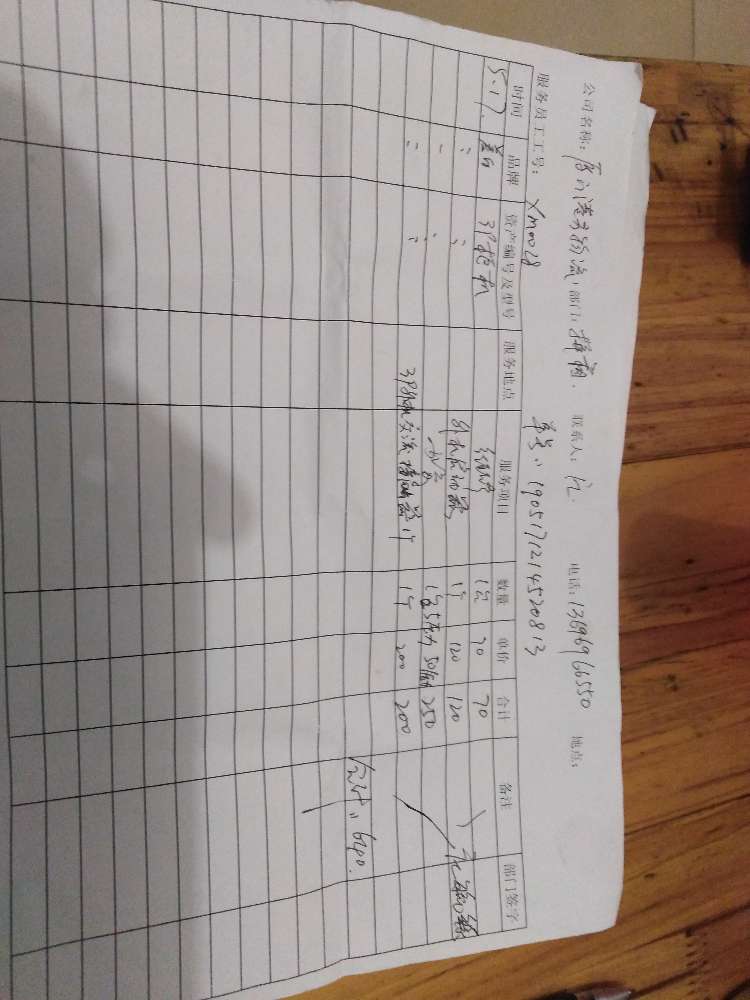 公司名称: 厦门港务物流 部门: 联系人: 江 电话: 13696966550 地点:
服务员工工号: Xm0028 单号: 1905171214520813
时间 品牌 资产编号及型号 服务地点 服务项目 数量 单价 合计 备注 部门签字
5.17. 美的 3P挂机 1台 70 70
〃 〃 外机启动器 1个 120 120
〃 〃 1台5压力 50/压力 250
〃 〃 3P外机交流接触器1个 1个 200 200
合计: 640.